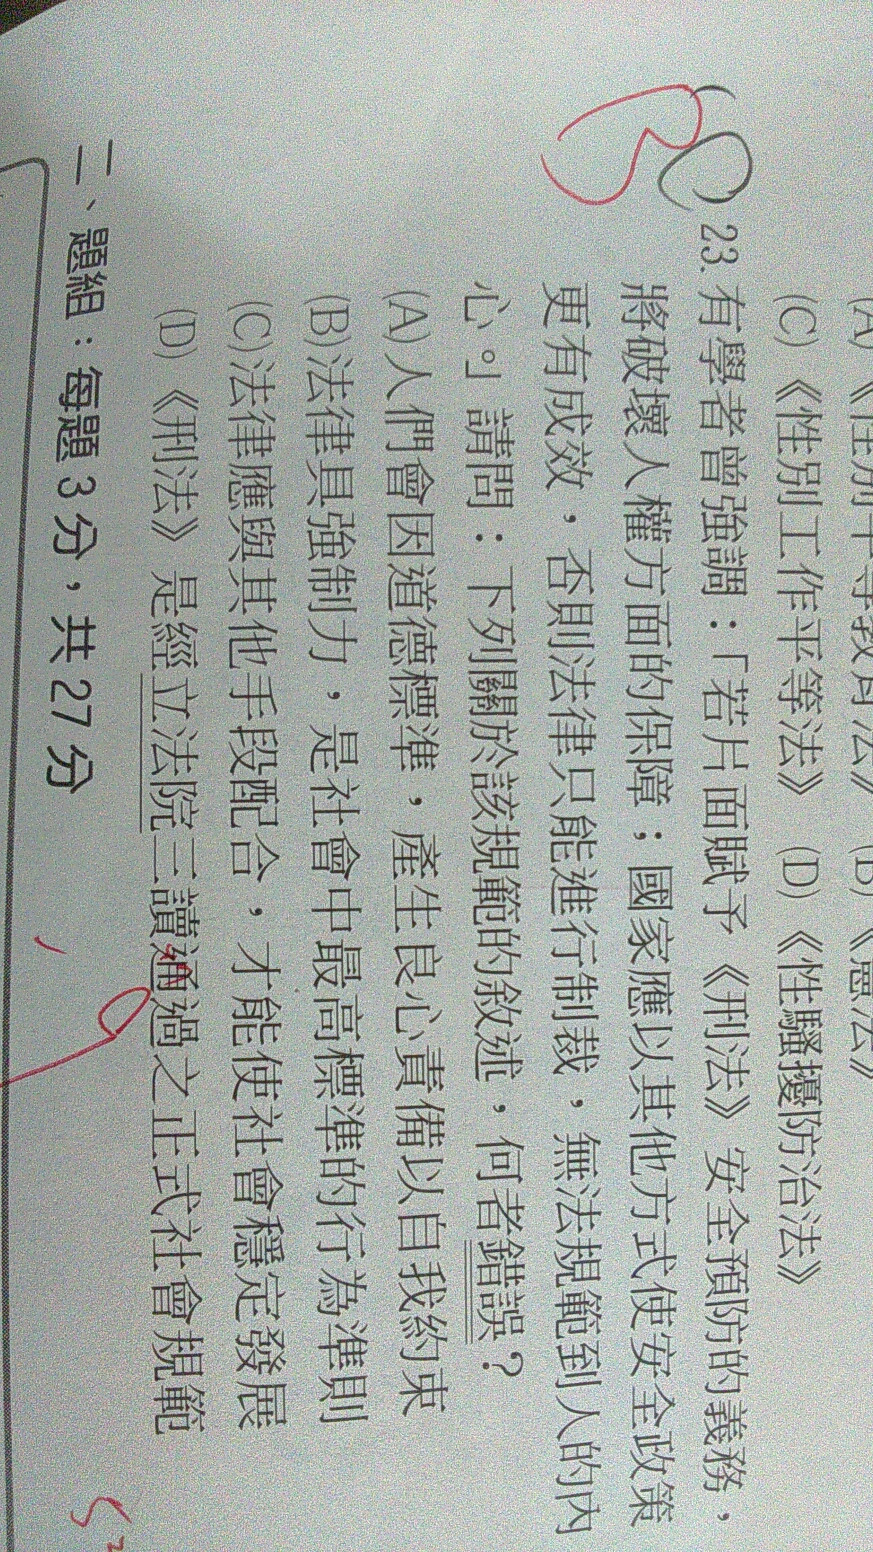 (C)《性別工作平等法》 (D)《性騷擾防治法》
23. 有學者曾強調：「若片面賦予《刑法》安全預防的義務，
將破壞人權方面的保障；國家應以其他方式使安全政策
更有成效，否則法律只能進行制裁，無法規範到人的內
心。」請問：下列關於該規範的敘述，何者錯誤？
(A)人們會因道德標準，產生良心責備以自我約束
(B)法律具強制力，是社會中最高標準的行為準則
(C)法律應與其他手段配合，才能使社會穩定發展
(D)《刑法》是經立法院三讀通過之正式社會規範
二、題組：每題 3 分，共 27 分